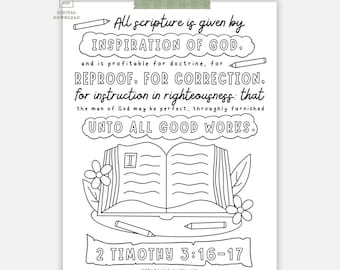 PDF
DIGITAL
DOWNLOAD
All scripture is given by
INSPIRATION OF GOD,
and is profitable for doctrine, for
REPROOF, FOR CORRECTION,
for instruction in righteousness: that
the man of God may be perfect, throughly furnished
UNTO ALL GOOD WORKS.
I
2 TIMOTHY 3:16-17